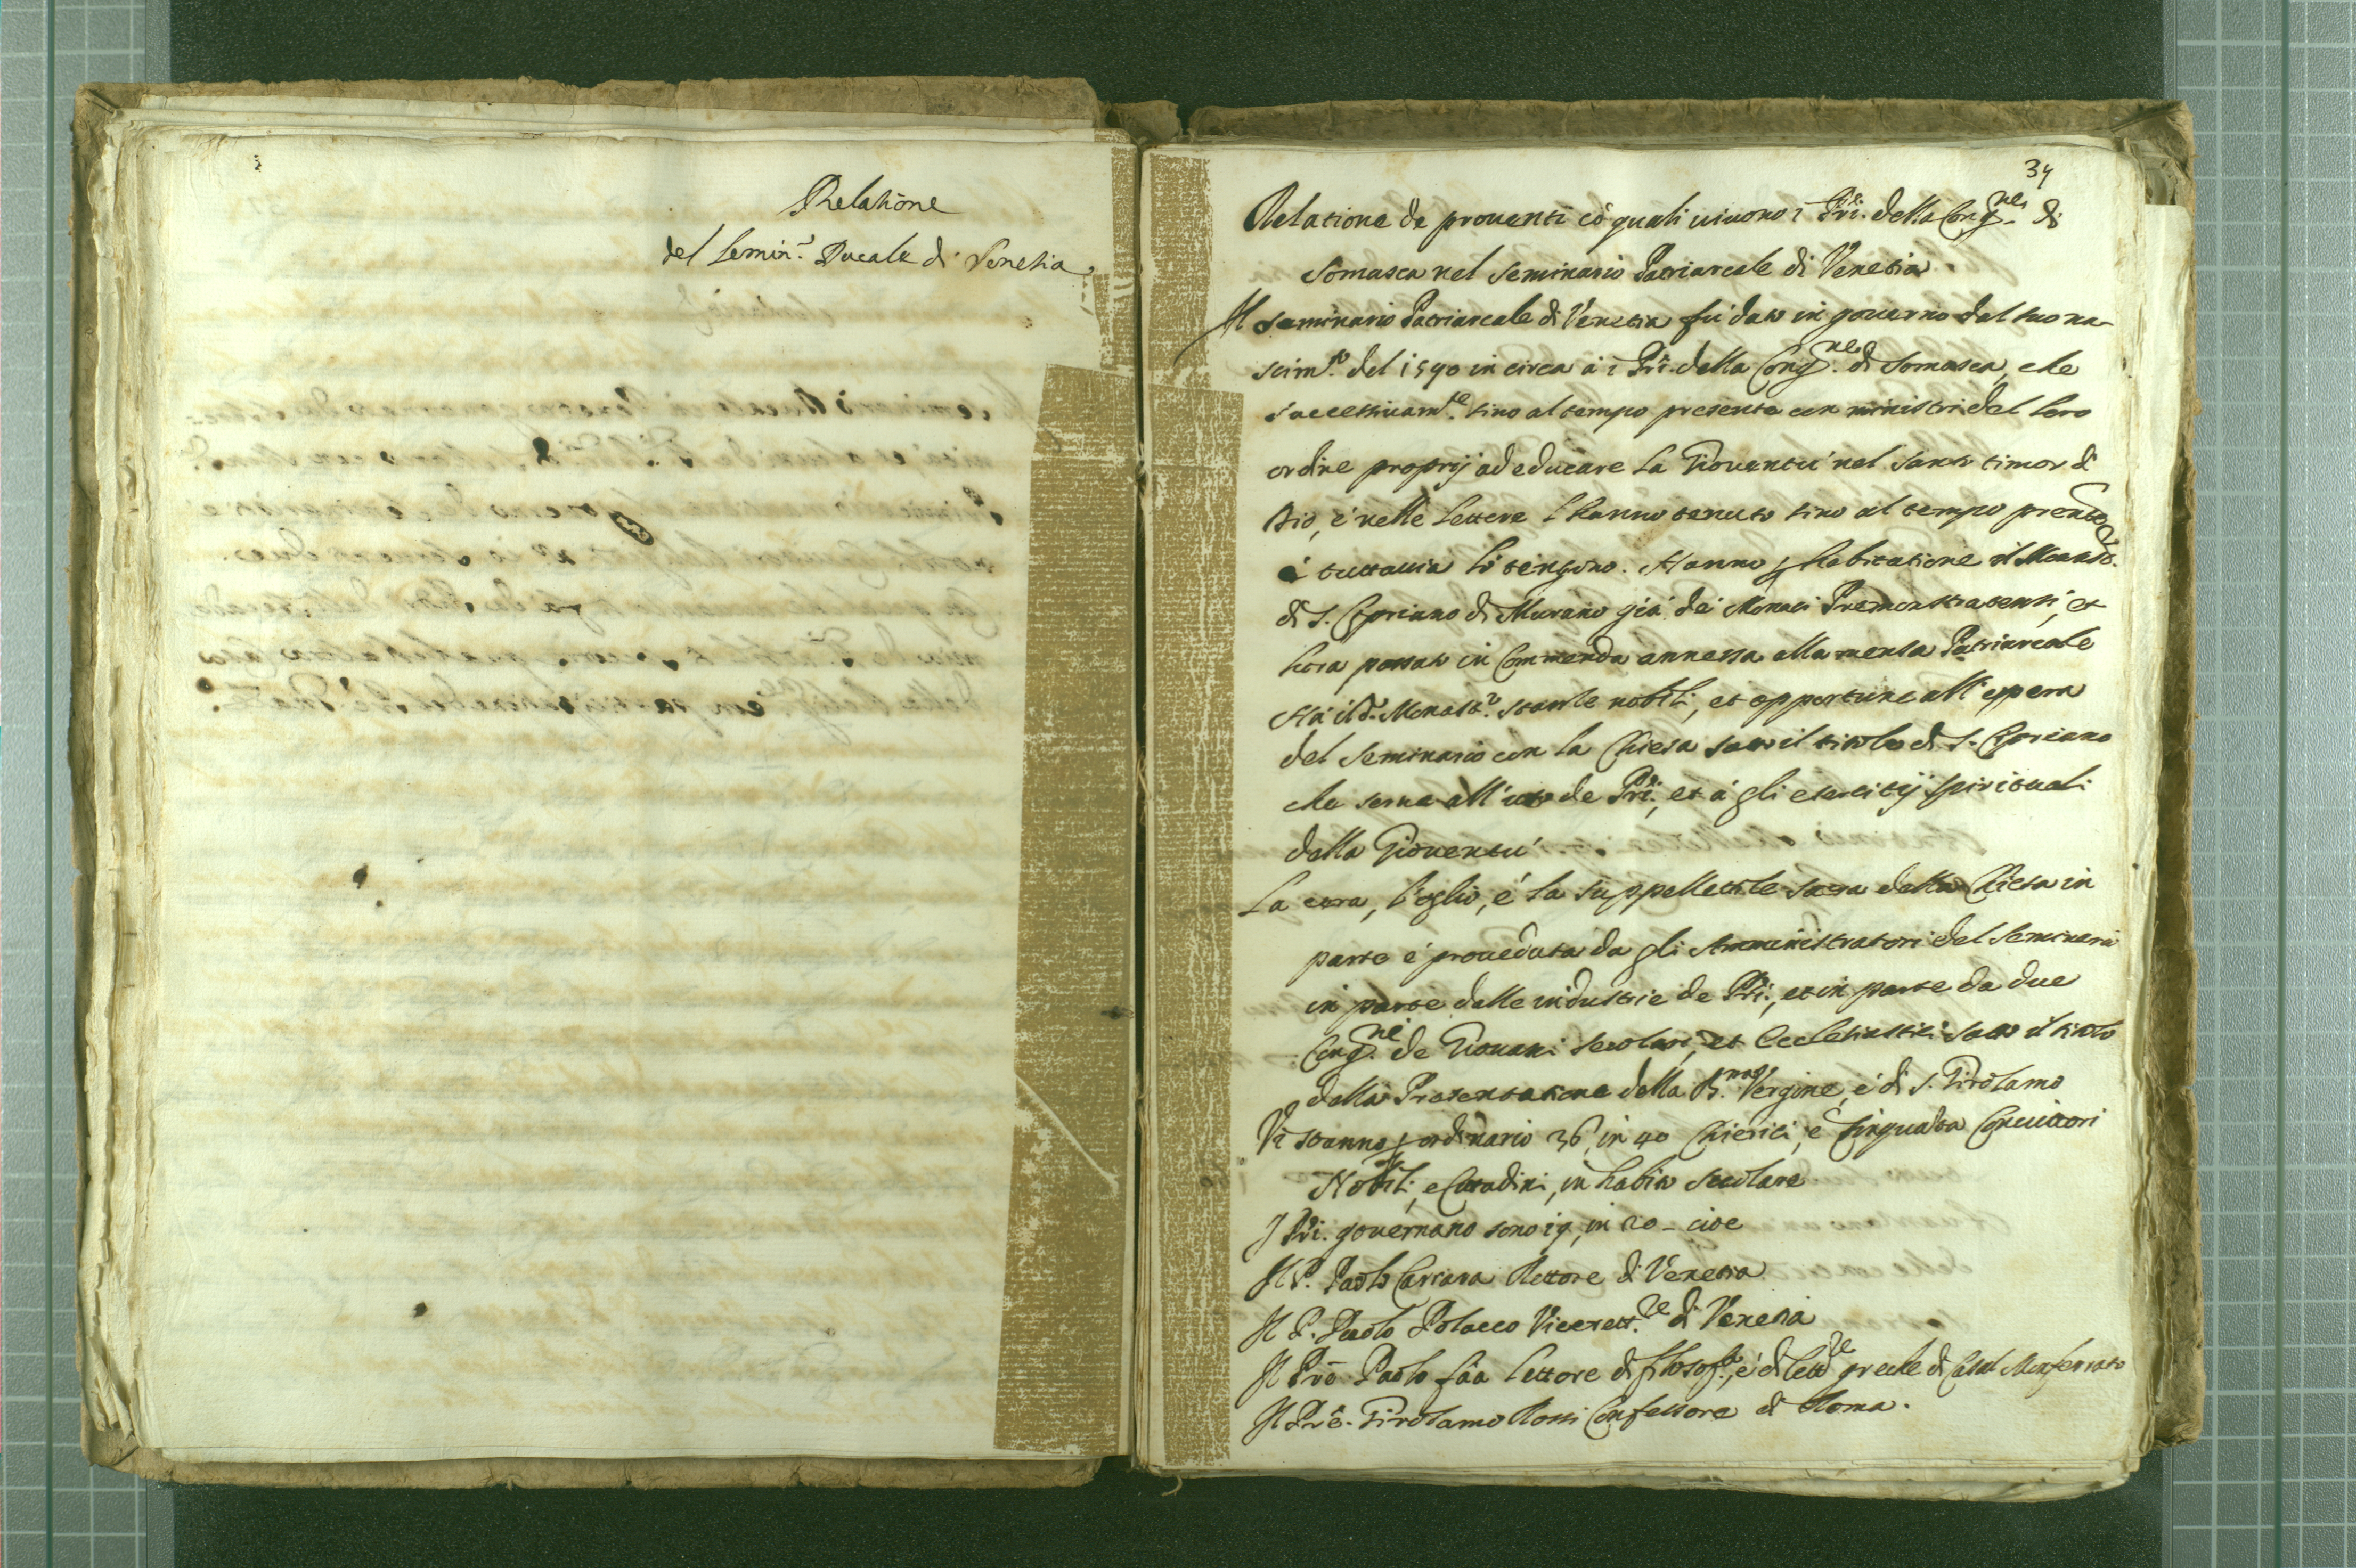 Relatione
del Semin.º Ducale di Venetia
34
Relatione de prouenti cõ quali uiuono i Pri. della Cong.ne di
Somasca nel Seminario Patriarcale di Venetia.
Il Seminario Patriarcale di Venetia fù dato in gouerno dal suo na-
scim.to del 1590 in circa à i Pri. della Cong.ne di Somasca, che
successiuam.te sino al tempo presente con ministri del loro
ordine proprij ad educare la Giouentù nel santo timor di
Dio, è nelle lettere l'hanno tenuto sino al tempo prente
è tuttauia lo tengono. Hanno p habitatione il Monast.ro
di S. Cipriano di Murano già dei Monaci Premonstratensi, et
hora passato in Commenda annessa alla mensa Patriarcale
Hà il d.º Monast.º stanze nobili, et opportune all'opera
del Seminario con la Chiesa sotto il titolo di S. Cipriano
che serue all'uso de Pri., et à gli esercitij spirituali
della Giouentù
La cera, l'oglio, é la suppellettile sacra della Chiesa in
parte è proueduta da gli Amministratori del Seminario
in parte dalle industrie de Pri., et in parte da due
Cong.ni de Giouani secolari, et Ecclesiastici sotto il titolo
della Presentatione della B.ma Vergine, è di S. Girolamo
Vi stanno p ordinario 36, in 40 Chierici, è cinquãta Conuittori
Nobili, e Cittadini, in habito secolare
I Pri. gouernano sono 19, in 20 - cioe
Il P. Paolo Carrara Rettore di Venetia
Il P. Paolo Polacco Vicerett.re di Venetia
Il Prẽ. Paolo fãa Lettore di filosof.a, è di lett.re greche di Casal Monferrato
Il Prẽ. Girolamo Rossi Confessore di Roma.